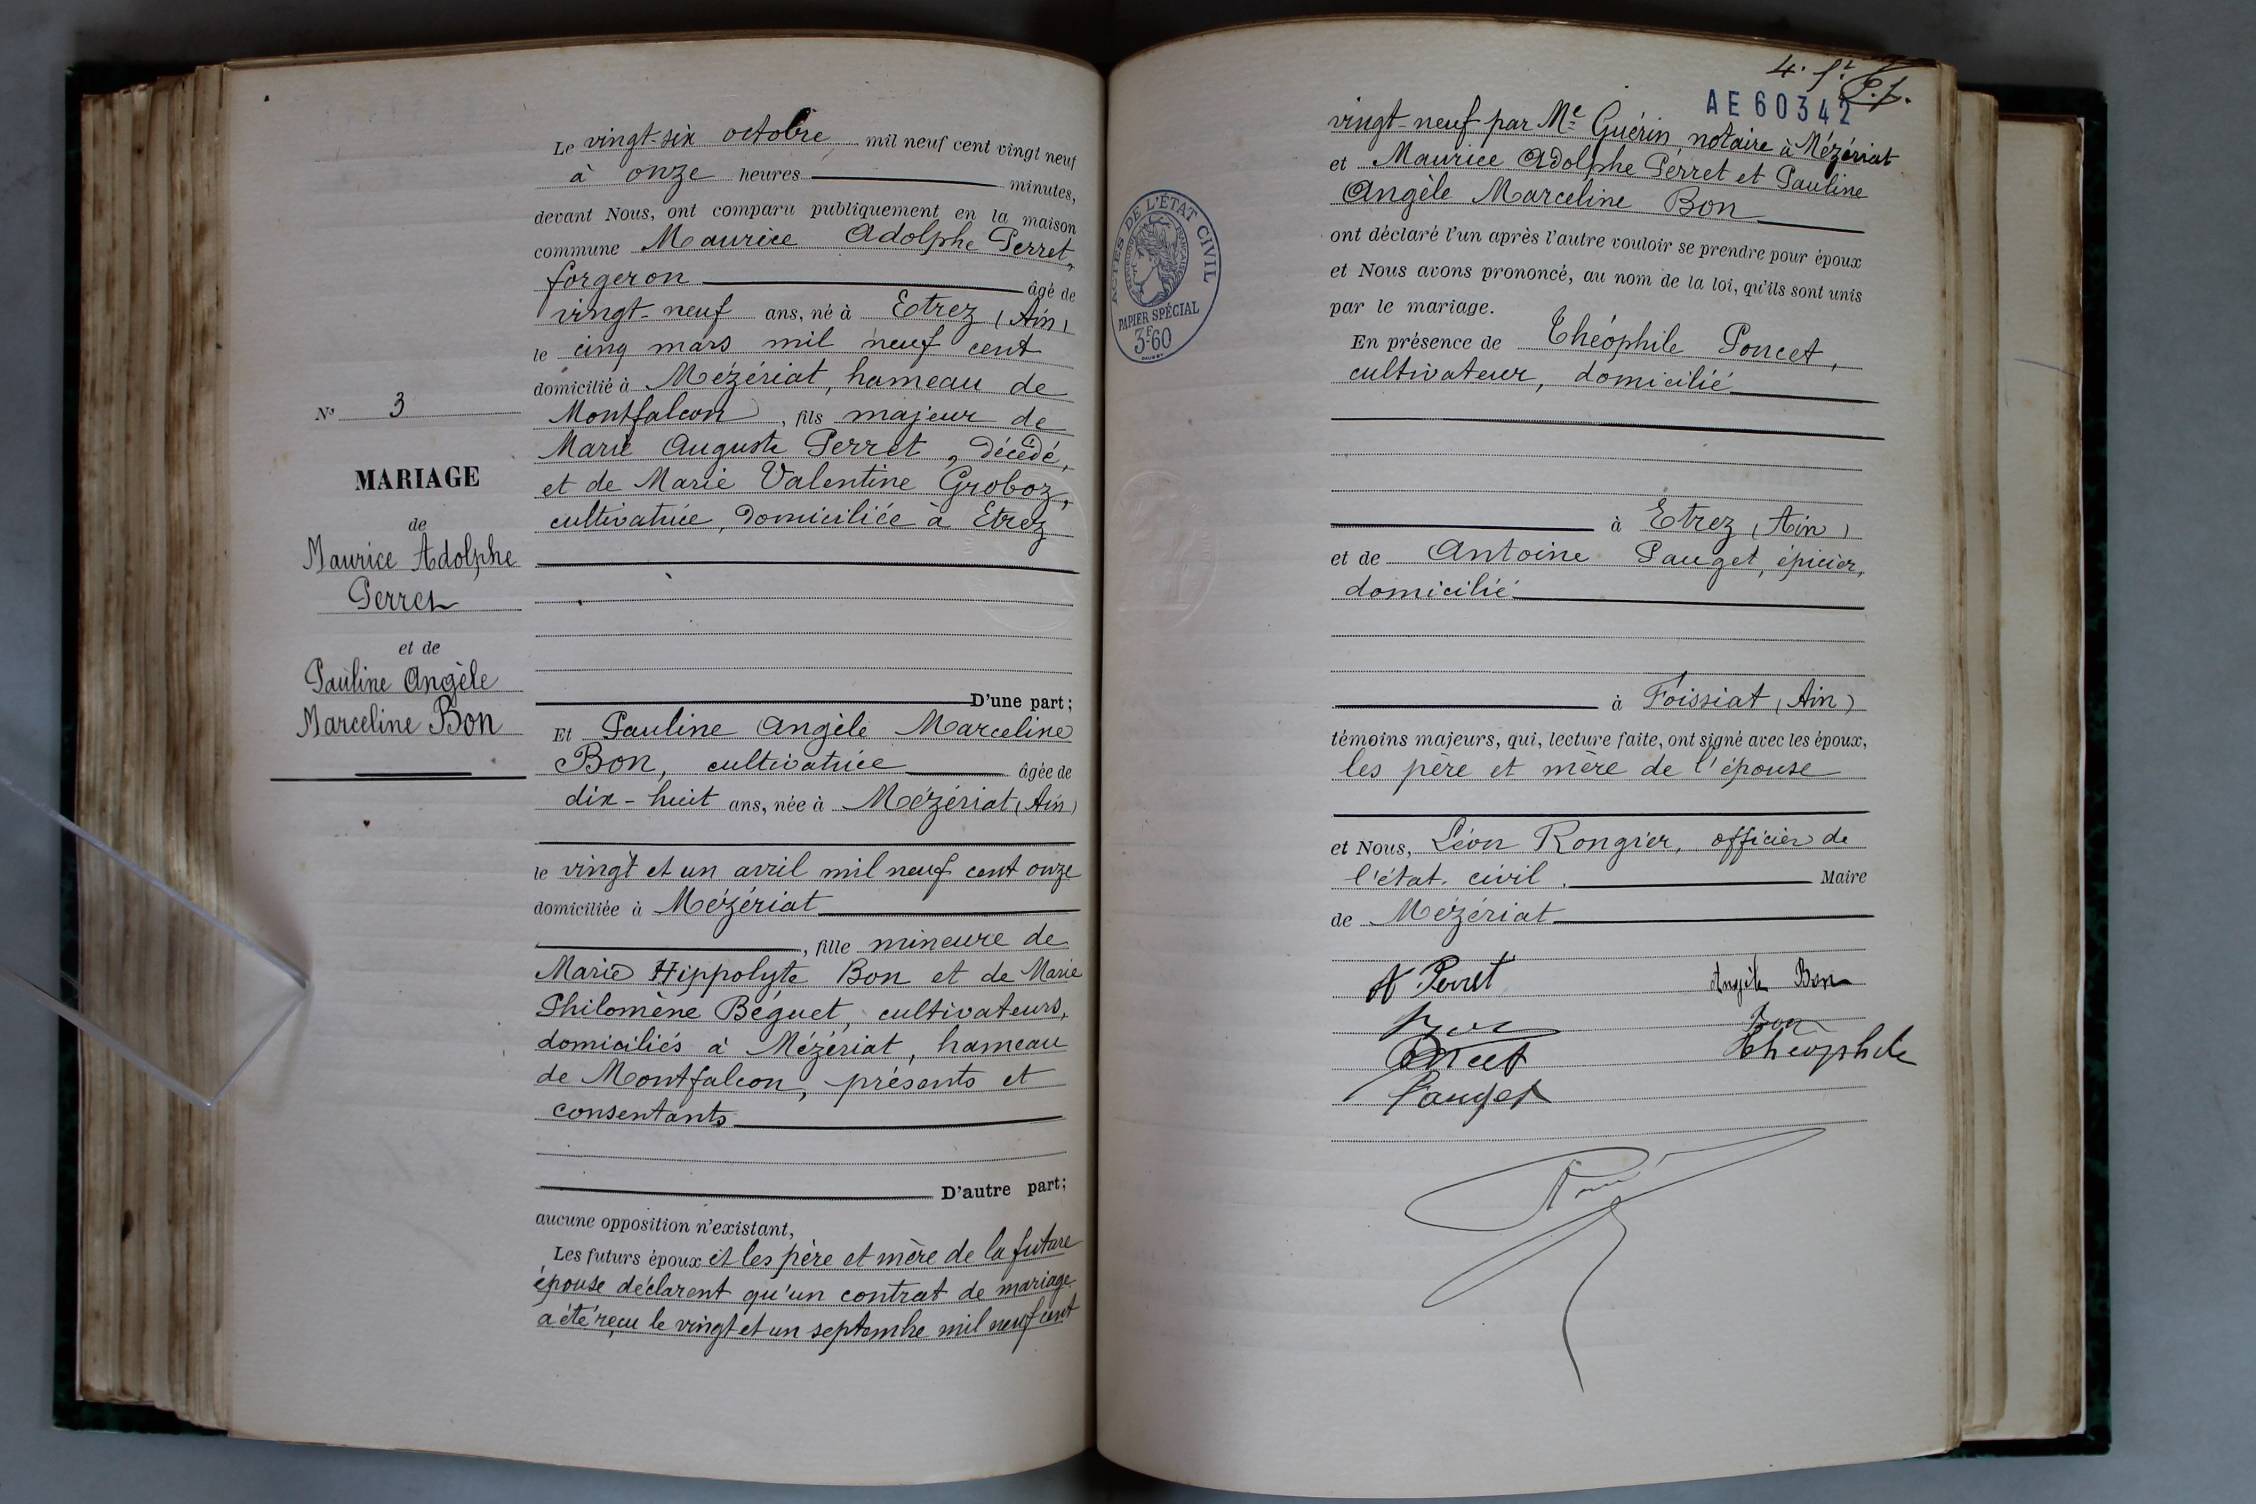 N° 3
MARIAGE
de
Maurice Adolphe
Perret
et de
Pauline Angèle
Marceline Bon
Le vingt-six octobre mil neuf cent vingt neuf
à onze heures minutes,
devant Nous, ont comparu publiquement en la maison
commune Maurice Adolphe Perret,
forgeron âgé de
vingt-neuf ans, né à Etrez (Ain)
le cinq mars mil neuf cent
domicilié à Mézériat, hameau de
Montfalcon, fils majeur de
Marie Auguste Perret, décédé,
et de Marie Valentine Groboz,
cultivatrice, domiciliée à Etrez
D'une part;
Et Pauline Angèle Marceline
Bon, cultivatrice âgée de
dix-huit ans, née à Mézériat (Ain)
le vingt et un avril mil neuf cent onze
domiciliée à Mézériat
, fille mineure de
Marie Hippolyte Bon et de Marie
Philomène Béguet, cultivateurs,
domiciliés à Mézériat, hameau
de Montfalcon, présents et
consentants
D'autre part;
aucune opposition n'existant,
Les futurs époux et les père et mère de la future
épouse déclarent qu'un contrat de mariage
a été reçu le vingt et un septembre mil neuf cent
AE 60342
vingt-neuf par Me Guérin, notaire à Mézériat
et Maurice Adolphe Perret et Pauline
Angèle Marceline Bon
ont déclaré l'un après l'autre vouloir se prendre pour époux
et Nous avons prononcé, au nom de la loi, qu'ils sont unis
par le mariage.
ACTES DE L'ÉTAT CIVIL
PAPIER SPÉCIAL
3F60
En présence de Théophile Poncet,
cultivateur, domicilié
à Etrez (Ain)
et de Antoine Pauget, épicier,
domicilié
à Foissiat (Ain)
témoins majeurs, qui, lecture faite, ont signé avec les époux,
les père et mère de l'épouse
et Nous, Léon Rongier, officier de
l'état civil. Maire
de Mézériat
A Perret Angèle Bon
Bon
Poncet Théophile
Pauget